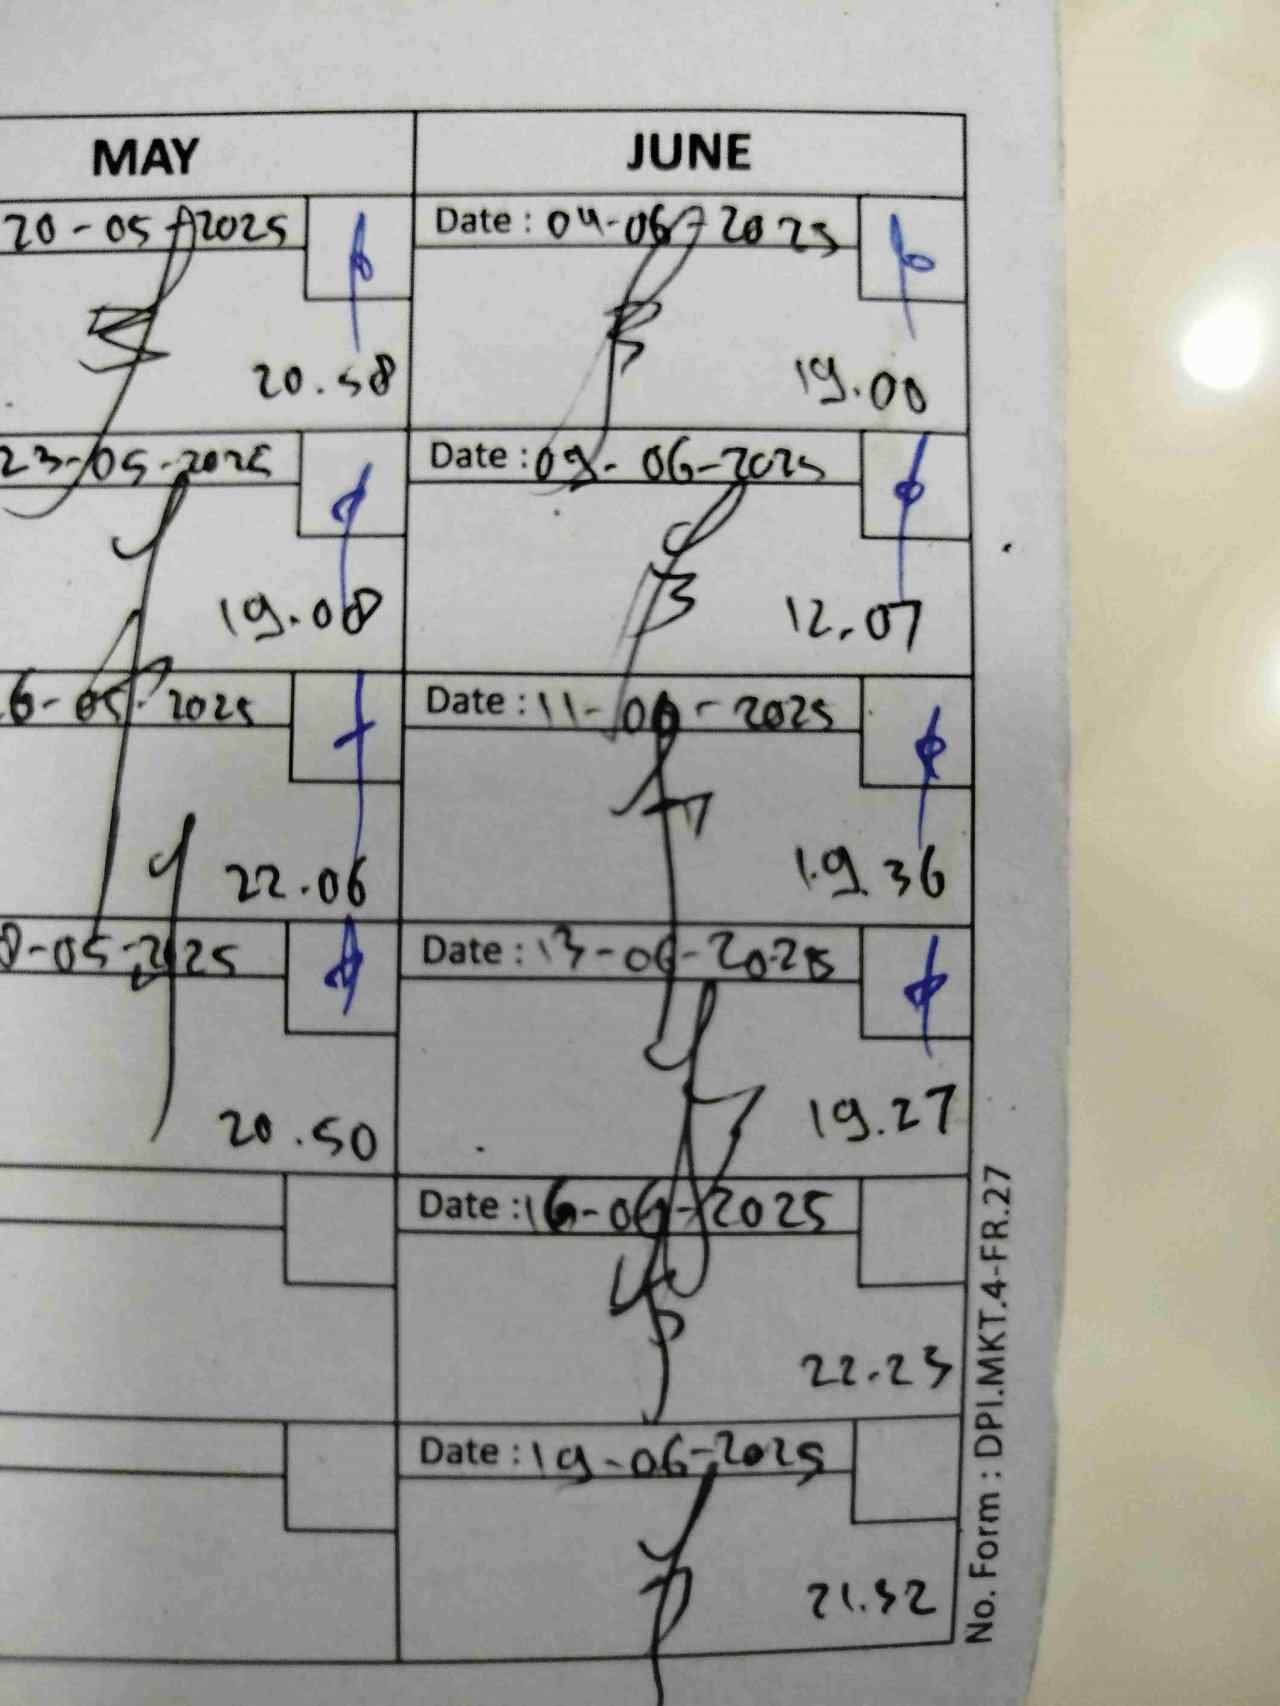 MAY
JUNE
20-05-2025
Date : 04-06-2025
20.58
19.00
23-05-2025
Date : 09-06-2025
19.08
12.07
6-05-2025
Date : 11-06-2025
22.06
19.36
8-05-2025
Date : 13-06-2025
20.50
19.27
Date : 16-06-2025
22.23
Date : 19-06-2025
21.52
No. Form : DPI.MKT.4-FR.27